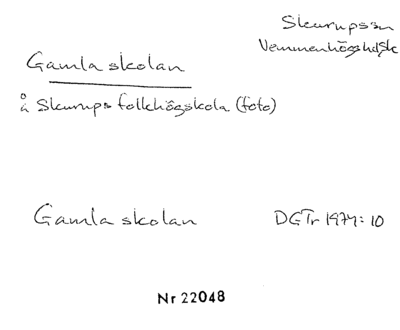 Skurups sn
Vemmenhögs hd, Sk
Gamla skolan
å Skurups folkhögskola (foto)
Gamla skolan DGTr 1974:10
Nr 22048